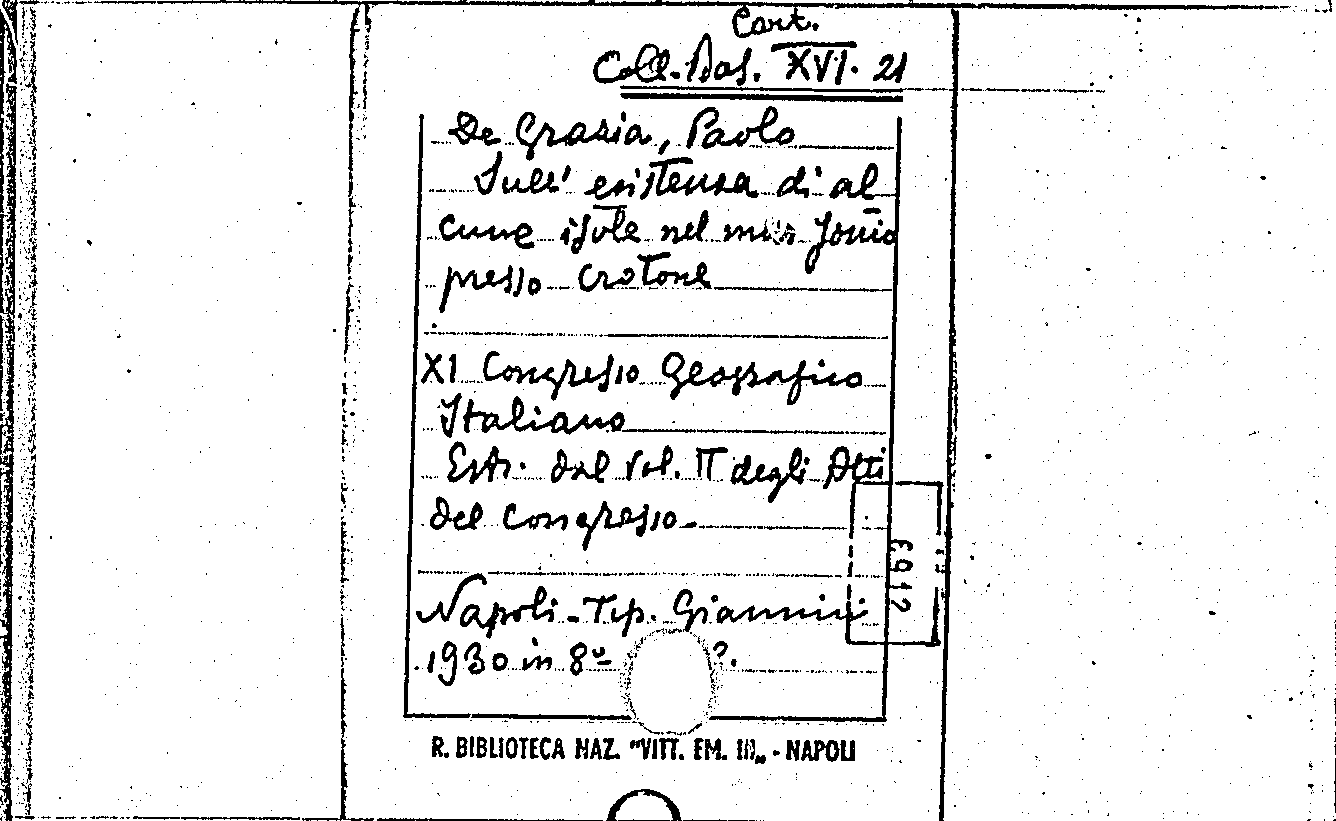 Cart.
Coll. Bas. XVI. 21
De Grazia, Paolo
Sull' esistenza di al
cune isole nel mar Jonio
presso Crotone
XI Congresso Geografico
Italiano
Estr. dal Vol. II degli Atti
del Congresso.
Napoli - Tip. Giannini
1930 in 8º
R. BIBLIOTECA NAZ. "VITT. EM. III„ - NAPOLI